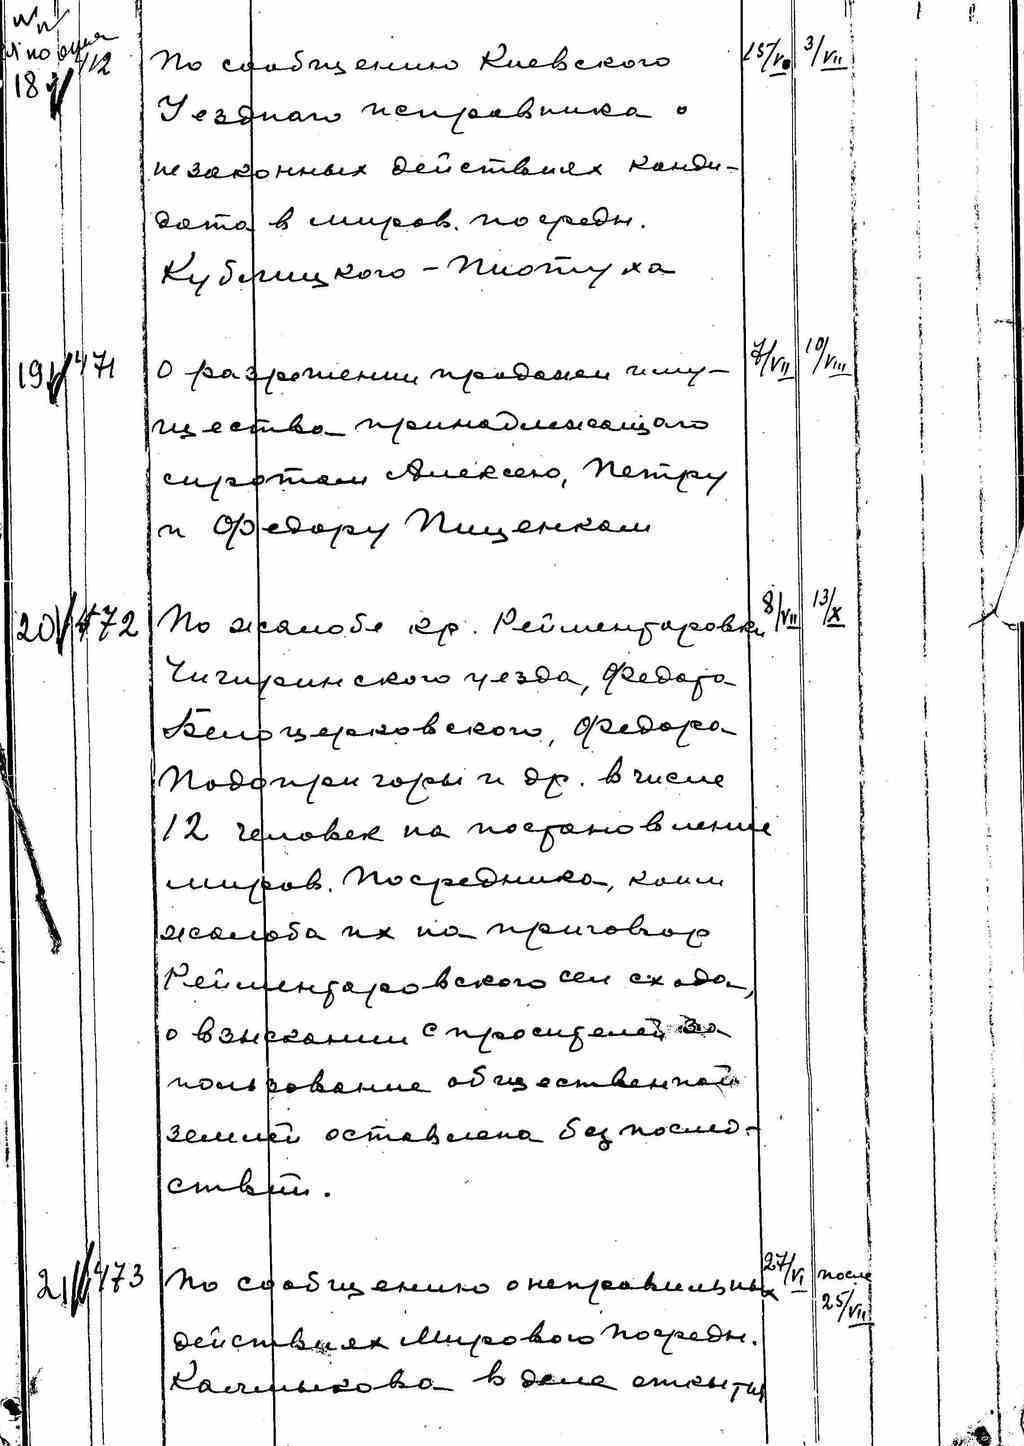 18 112 По сообщению Киевского 15/V 3/VII
Уездного исправника о
незаконных действиях канди-
дата в миров. посредн.
Кублицкого-Пиотуха
19 471 О разрешении продажи иму- 7/VII 10/VIII
щества принадлежащого
сиротам Алексею, Петру
и Федору Пищенкам
20 472 По жалобе кр. Рейментаровки 8/VII 13/X
Чигиринского уезда, Федота
Белоцерковского, Федора
Подопригоры и др. в числе
12 человек на постановление
миров. Посредника, коим
жалоба их на приговор
Рейментаровского сел схода,
о взыскании с просителей за
пользование общественной
землей оставлена без послед-
ствий.
21 473 По сообщению о неправильных 27/VI после 25/VII
действиях Мирового Посредн.
Калмыкова в деле открытия